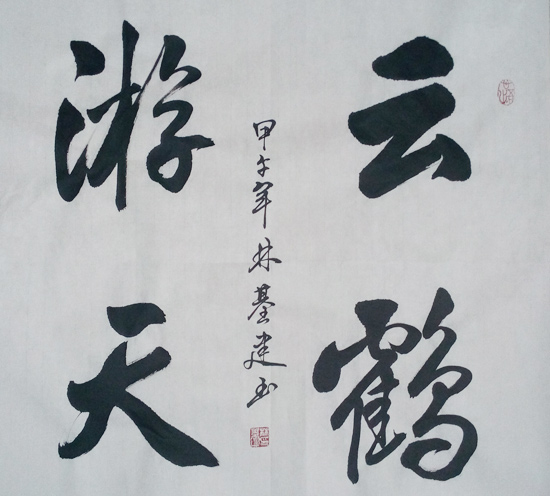 云鹤
游天
甲午年林基建书